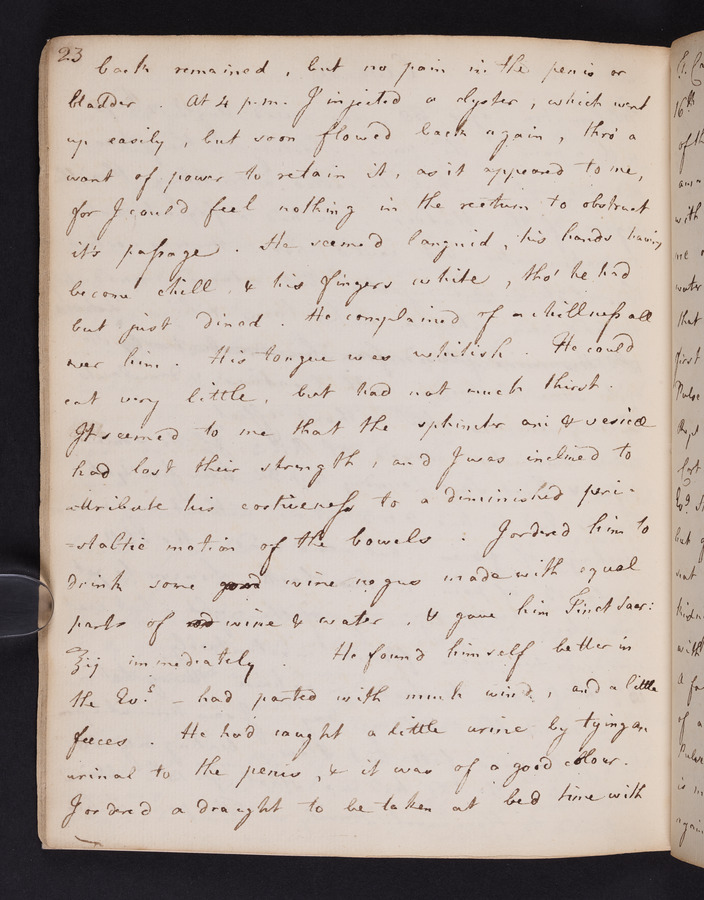 23
back remained, but no pain in the penis or
bladder. At 4 p.m. I injected a clyster, which went
up easily, but soon flowed back again, thro' a
want of power to retain it, as it appeared to me,
for I could feel nothing in the rectum to obstruct
it's passage. He seemed languid, his hands having
become chill & his fingers white, tho' he had
but just dined. He complained of a chillness all
over him. His tongue was whitish. He could
eat very little, but had not much thirst.
It seemed to me that the sphincter ani & vesicæ
had lost their strength, and I was inclined to
attribute his costiveness to a diminished peri-
=staltic motion of the bowels. I ordered him to
drink some wine negus made with equal
parts of wine & water, & gave him Tinct Sacr:
℥ij immediately. He found himself better in
the Evg. – had parted with much wind, and a little
fæces. He had caught a little urine by tying an
urinal to the penis, & it was of a good colour.
I ordered a draught to be taken at bed time with